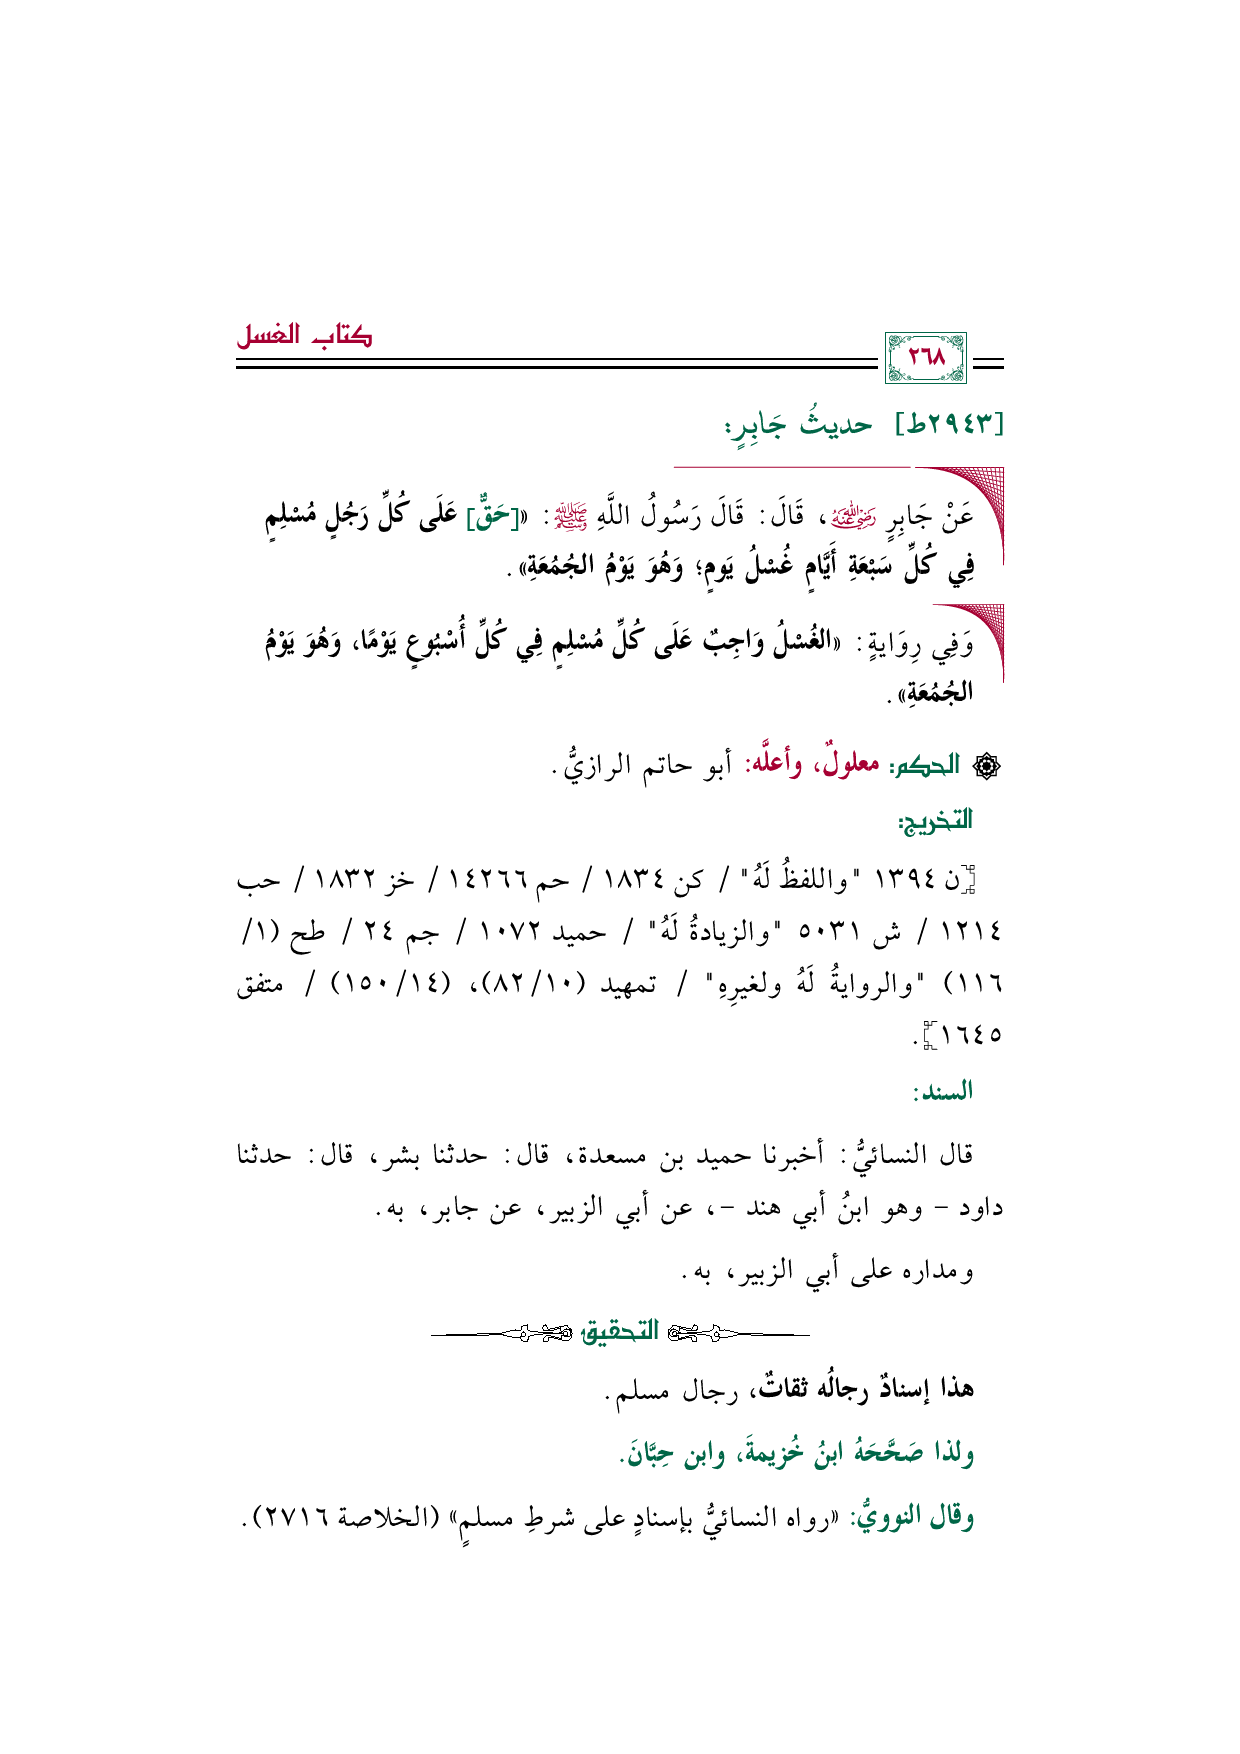 كتاب الغسل
٢٦٨
[٢٩٤٣ط] حديثُ جَابِرٍ:
عَنْ جَابِرٍ رضي الله عنه، قَالَ: قَالَ رَسُولُ اللَّهِ ﷺ: «[حَقٌّ] عَلَى كُلِّ رَجُلٍ مُسْلِمٍ
فِي كُلِّ سَبْعَةِ أَيَّامٍ غُسْلُ يَومٍ؛ وَهُوَ يَوْمُ الجُمُعَةِ».
وَفِي رِوَايةٍ: «الغُسْلُ وَاجِبٌ عَلَى كُلِّ مُسْلِمٍ فِي كُلِّ أُسْبُوعٍ يَوْمًا، وَهُوَ يَوْمُ
الجُمُعَةِ».
الحكم: معلولٌ، وأعلَّه: أبو حاتم الرازيُّ.
التخريج:
[ن ١٣٩٤ "واللفظُ لَهُ" / كن ١٨٣٤ / حم ١٤٢٦٦ / خز ١٨٣٢ / حب
١٢١٤ / ش ٥٠٣١ "والزيادةُ لَهُ" / حميد ١٠٧٢ / جم ٢٤ / طح (١/
١١٦) "والروايةُ لَهُ ولغيرِهِ" / تمهيد (١٠/ ٨٢)، (١٤/ ١٥٠) / متفق
١٦٤٥].
السند:
قال النسائيُّ: أخبرنا حميد بن مسعدة، قال: حدثنا بشر، قال: حدثنا
داود – وهو ابنُ أبي هند –، عن أبي الزبير، عن جابر، به.
ومداره على أبي الزبير، به.
التحقيق
هذا إسنادٌ رجالُه ثقاتٌ، رجال مسلم.
ولذا صَحَّحَهُ ابنُ خُزيمةَ، وابن حِبَّانَ.
وقال النوويُّ: «رواه النسائيُّ بإسنادٍ على شرطِ مسلمٍ» (الخلاصة ٢٧١٦).